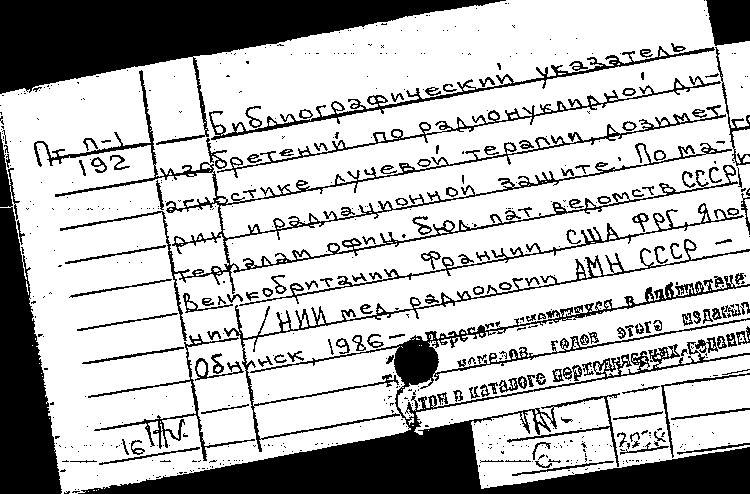 Библиографический указатель
Пт П-1
192
изобретений по радионуклидной ди-
агностике, лучевой терапии, дозимет
рии и радиационной защите: По ма-
териалам офиц. бюл. пат. ведомств СССР,
Великобритании, Франции, США, ФРГ, Япо-
нии / НИИ мед. радиологии АМН СССР. —
Обнинск, 1986 —
Перечень имеющихся в библиотеке
номеров, годов этого издания
в каталоге периодических изданий
16